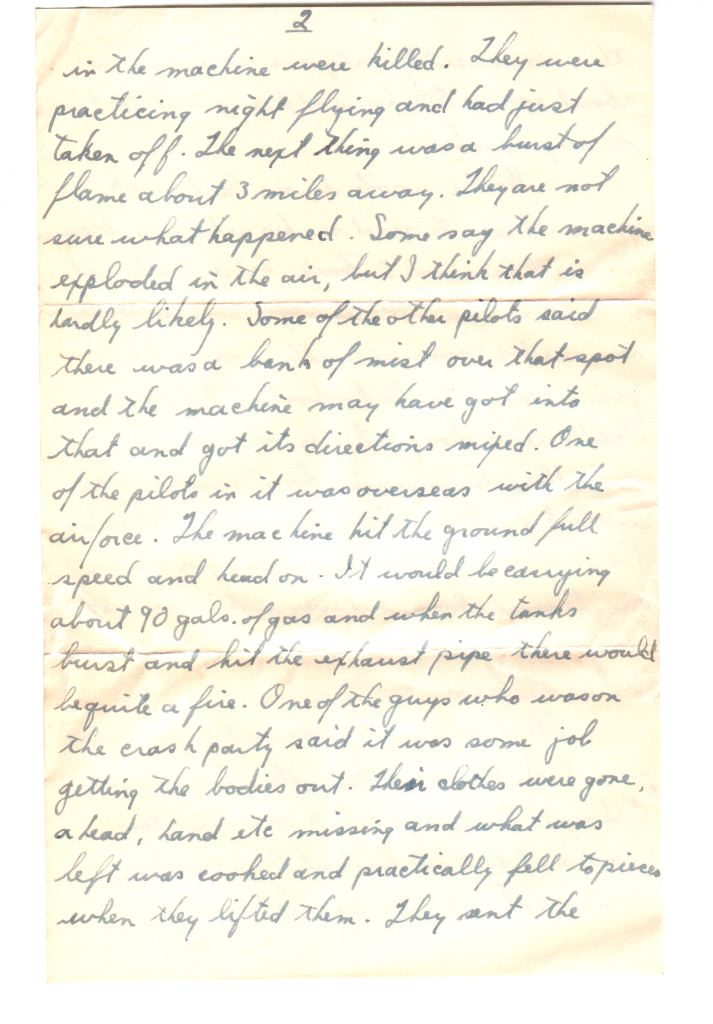 2
in the machine were killed. They were
practicing night flying and had just
taken off. The next thing was a burst of
flame about 3 miles away. They are not
sure what happened. Some say the machine
exploded in the air, but I think that is
hardly likely. Some of the other pilots said
there was a bank of mist over that spot
and the machine may have got into
that and got its directions mixed. One
of the pilots in it was overseas with the
airforce. The machine hit the ground full
speed and head on. It would be carrying
about 90 gals. of gas and when the tanks
burst and hit the exhaust pipe there would
be quite a fire. One of the guys who was on
the crash party said it was some job
getting the bodies out. Their clothes were gone,
a head, hand etc missing and what was
left was cooked and practically fell to pieces
when they lifted them. They sent the